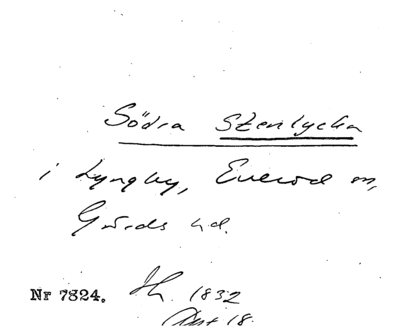 Södra Stenlycka
i Lyngby, Everöd sn,
Gärds hd.
Nr 7824. 1832
18.